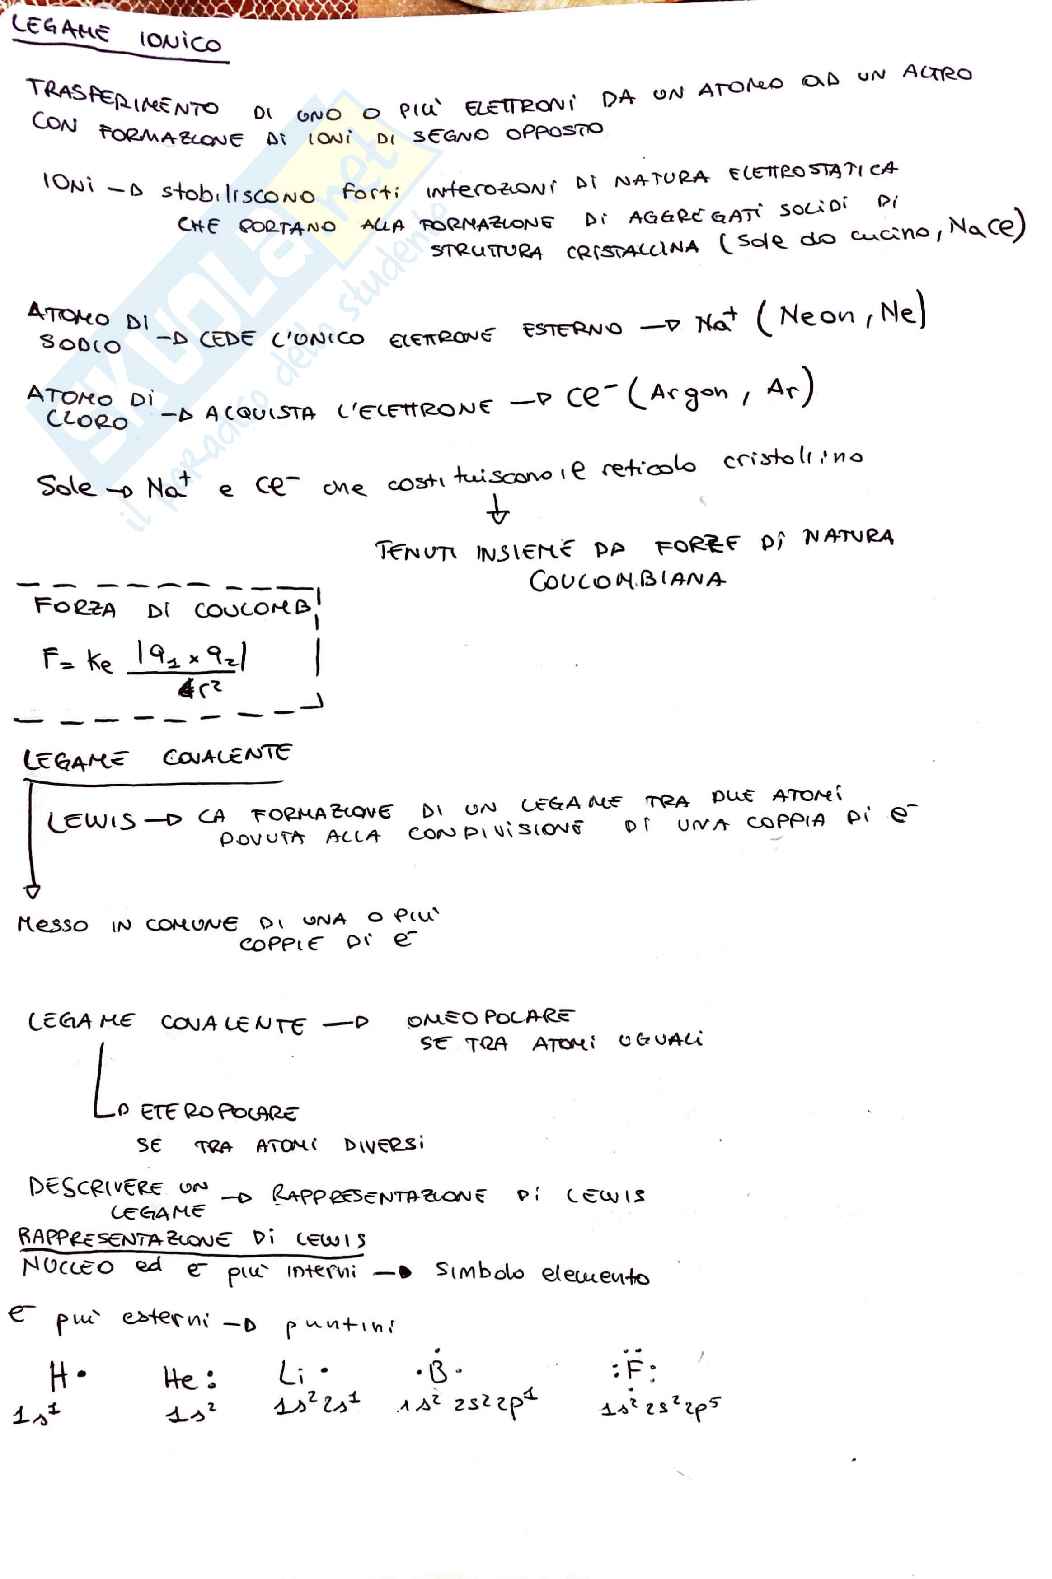 LEGAME IONICO
TRASFERIMENTO DI UNO O PIU' ELETTRONI DA UN ATOMO AD UN ALTRO
CON FORMAZIONE DI IONI DI SEGNO OPPOSTO
IONI → stabiliscono forti interazioni DI NATURA ELETTROSTATICA
CHE PORTANO ALLA FORMAZIONE DI AGGREGATI SOLIDI DI
STRUTTURA CRISTALLINA (sale da cucina, NaCl)
ATOMO DI
SODIO → CEDE L'UNICO ELETTRONE ESTERNO → Na⁺ (Neon, Ne)
ATOMO DI
CLORO → ACQUISTA L'ELETTRONE → Cl⁻ (Argon, Ar)
Sale → Na⁺ e Cl⁻ che costituiscono il reticolo cristallino
↓
TENUTI INSIEME DA FORZE DI NATURA
COULOMBIANA
FORZA DI COULOMB
F = Ke |q₁ × q₂| / r²
LEGAME COVALENTE
LEWIS → LA FORMAZIONE DI UN LEGAME TRA DUE ATOMI
DOVUTA ALLA CONDIVISIONE DI UNA COPPIA DI e⁻
Messo IN COMUNE DI UNA O PIU'
COPPIE DI e⁻
LEGAME COVALENTE → OMEOPOLARE
SE TRA ATOMI UGUALI
→ ETEROPOLARE
SE TRA ATOMI DIVERSI
DESCRIVERE UN → RAPPRESENTAZIONE DI LEWIS
LEGAME
RAPPRESENTAZIONE DI LEWIS
NUCLEO ed e⁻ più interni → simbolo elemento
e⁻ più esterni → puntini
H· He: Li· ·B· :F:
1s¹ 1s² 1s² 2s¹ 1s² 2s² 2p¹ 1s² 2s² 2p⁵
SKUOLA.net
il paradiso dello studente